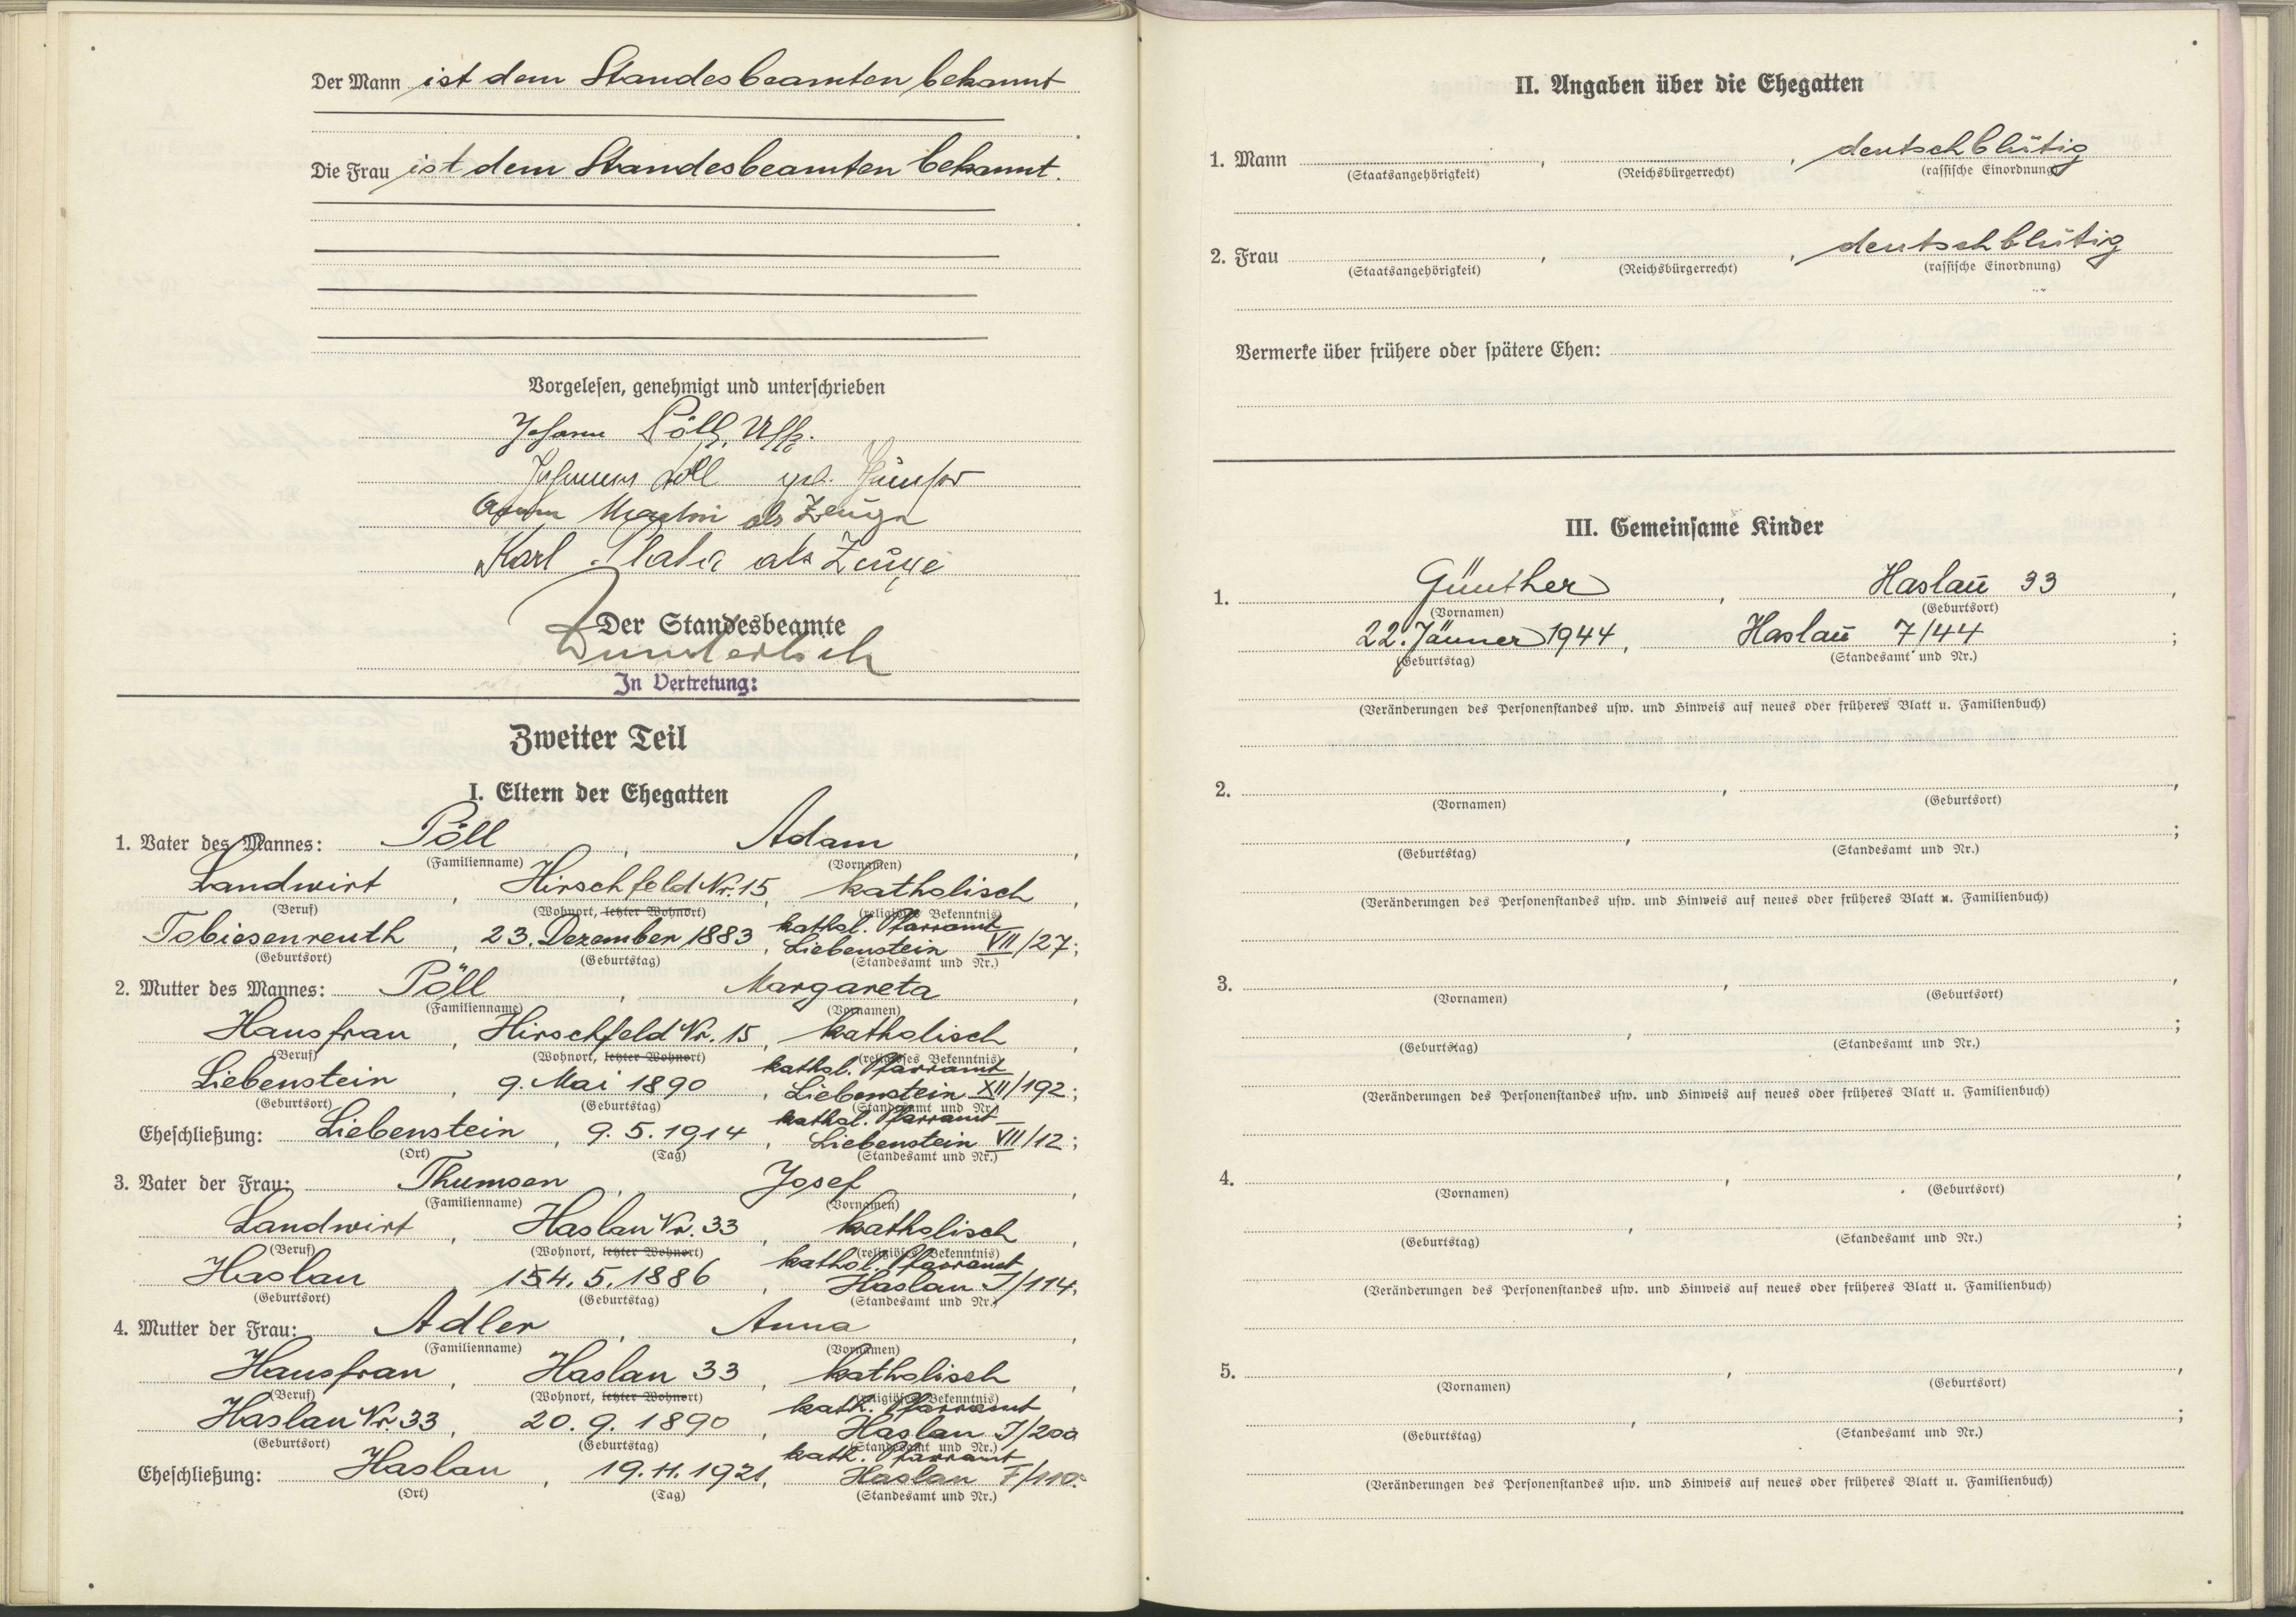 Der Mann ist dem Standesbeamten bekannt
Die Frau ist dem Standesbeamten bekannt.
Vorgelesen, genehmigt und unterschrieben
Johann Pöll, Uffz.
Pöll geb.
als Zeuge
Karl als Zeuge
Der Standesbeamte
In Vertretung:
Zweiter Teil
I. Eltern der Ehegatten
1. Vater des Mannes: Pöll, Adam,
(Familienname) (Vornamen)
Landwirt, Hirschfeld Nr. 15, katholisch,
(Beruf) (Wohnort, letzter Wohnort) (religiöses Bekenntnis)
kathol. Pfarramt
Tobiesenreuth, 23. Dezember 1883, Liebenstein VII/27;
(Geburtsort) (Geburtstag) (Standesamt und Nr.)
2. Mutter des Mannes: Pöll, Margareta,
(Familienname) (Vornamen)
Hausfrau, Hirschfeld Nr. 15, katholisch,
(Beruf) (Wohnort, letzter Wohnort) (religiöses Bekenntnis)
kathol. Pfarramt
Liebenstein, 9. Mai 1890, Liebenstein XII/192;
(Geburtsort) (Geburtstag) (Standesamt und Nr.)
kathol. Pfarramt
Eheschließung: Liebenstein, 9.5.1914, Liebenstein VII/12;
(Ort) (Tag) (Standesamt und Nr.)
3. Vater der Frau: Thumsen, Josef,
(Familienname) (Vornamen)
Landwirt, Haslau Nr. 33, katholisch,
(Beruf) (Wohnort, letzter Wohnort) (religiöses Bekenntnis)
kathol. Pfarramt
Haslau, 5.1886, Haslau J/114;
(Geburtsort) (Geburtstag) (Standesamt und Nr.)
4. Mutter der Frau: Adler, Anna,
(Familienname) (Vornamen)
Hausfrau, Haslau 33, katholisch,
(Beruf) (Wohnort, letzter Wohnort) (religiöses Bekenntnis)
kath. Pfarramt
Haslau Nr. 33, 20.9.1890, Haslau J/200
(Geburtsort) (Geburtstag) (Standesamt und Nr.)
kath. Pfarramt
Eheschließung: Haslau, 19.11.1921, Haslau F/110;
(Ort) (Tag) (Standesamt und Nr.)
II. Angaben über die Ehegatten
1. Mann , , deutschblütig
(Staatsangehörigkeit) (Reichsbürgerrecht) (rassische Einordnung)
2. Frau , , deutschblütig
(Staatsangehörigkeit) (Reichsbürgerrecht) (rassische Einordnung)
Vermerke über frühere oder spätere Ehen:
III. Gemeinsame Kinder
1. Günther, Haslau 33,
(Vornamen) (Geburtsort)
22. Jänner 1944, Haslau 7/44;
(Geburtstag) (Standesamt und Nr.)
(Veränderungen des Personenstandes usw. und Hinweis auf neues oder früheres Blatt u. Familienbuch)
2. , ,
(Vornamen) (Geburtsort)
, ;
(Geburtstag) (Standesamt und Nr.)
(Veränderungen des Personenstandes usw. und Hinweis auf neues oder früheres Blatt u. Familienbuch)
3. , ,
(Vornamen) (Geburtsort)
, ;
(Geburtstag) (Standesamt und Nr.)
(Veränderungen des Personenstandes usw. und Hinweis auf neues oder früheres Blatt u. Familienbuch)
4. , ,
(Vornamen) (Geburtsort)
, ;
(Geburtstag) (Standesamt und Nr.)
(Veränderungen des Personenstandes usw. und Hinweis auf neues oder früheres Blatt u. Familienbuch)
5. , ,
(Vornamen) (Geburtsort)
, ;
(Geburtstag) (Standesamt und Nr.)
(Veränderungen des Personenstandes usw. und Hinweis auf neues oder früheres Blatt u. Familienbuch)